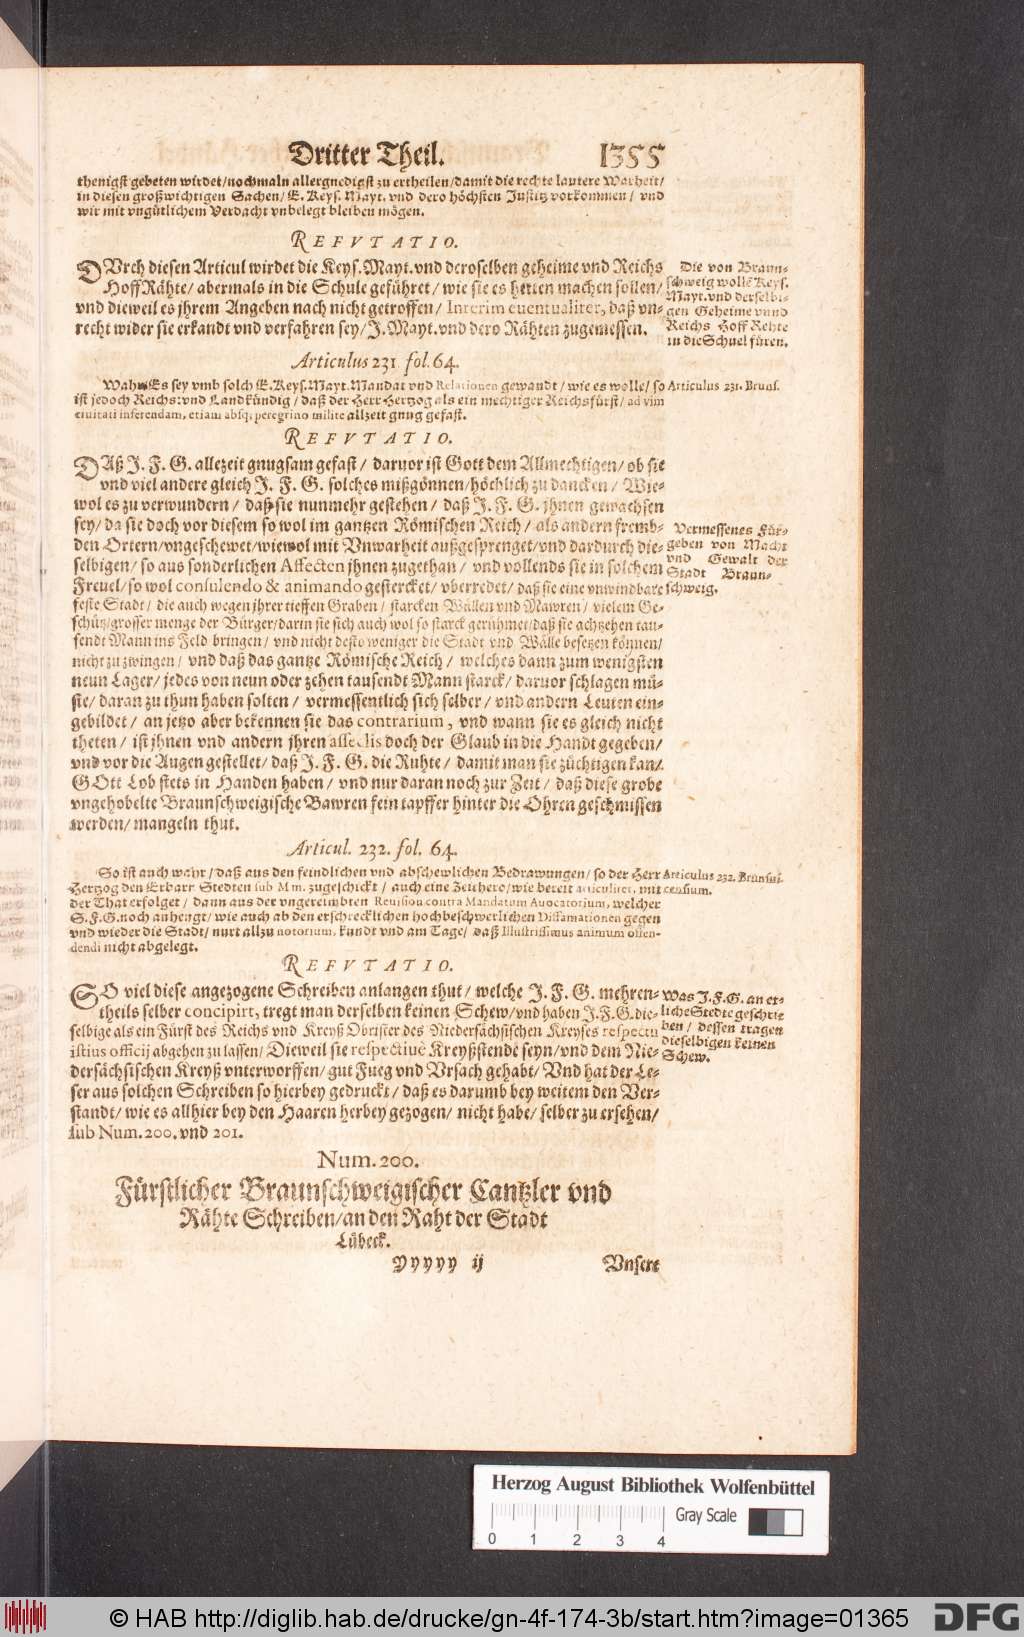 Dritter Theil. 1355
thenigst gebeten wirdet/nochmaln allergnedigst zu ertheilen/damit die rechte lautere Warheit/
in diesen großwichtigen Sachen/ E. Keys. Mayt. vnd dero höchsten Justitz vorkommen/ vnd
wir mit vngütlichem Verdacht vnbelegt bleiben mögen.
REFVTATIO.
DVrch diesen Articul wirdet die Keys. Mayt. vnd deroselben geheime vnd Reichs
HoffRähte/ abermals in die Schule geführet/ wie sie es hetten machen sollen/
vnd dieweil es jhrem Angeben nach nicht getroffen/ Interim euentualiter, daß vn-
recht wider sie erkandt vnd verfahren sey/ J. Mayt. vnd dero Rähten zugemessen.
Die von Braun-
schweig wollē Keys.
Mayt. vnd derselbi-
gen Geheime vnnd
Reichs Hoff Rehte
in die Schuel füren.
Articulus 231. fol. 64.
Wahr/Es sey vmb solch E. Keys. Mayt. Mandat vnd Relationen gewandt/ wie es wolle/ so
ist jedoch Reichs: vnd Landkündig/ daß der Herr Hertzog als ein mechtiger Reichsfürst/ ad vim
ciuitati inferendam, etiam absq; peregrino milite allzeit gnug gefast.
Articulus 231. Bruns.
REFVTATIO.
DAß J. F. G. allezeit gnugsam gefast/ daruor ist Gott dem Allmechtigen/ ob sie
vnd viel andere gleich J. F. G. solches mißgönnen/höchlich zu dancken/ Wie-
wol es zu verwundern/ daß sie nunmehr gestehen/ daß J. F. G. jhnen gewachsen
sey/ da sie doch vor diesem so wol im gantzen Römischen Reich/ als andern fremb-
den Ortern/vngeschewet/wiewol mit Vnwarheit außgesprenget/vnd dardurch die-
selbigen/ so aus sonderlichen Affecten jhnen zugethan/ vnd vollends sie in solchem
Freuel/ so wol consulendo & animando gestercket/ vberredet/ daß sie eine vnwindbare
feste Stadt/ die auch wegen jhrer tieffen Graben/ starcken Wällen vnd Mawren/ vielem Ge-
schütz/grosser menge der Bürger/darin sie sich auch wol so starck gerühmet/daß sie achzehen tau-
sendt Mann ins Feld bringen/ vnd nicht desto weniger die Stadt vnd Wälle besetzen können/
nicht zu zwingen/ vnd daß das gantze Römische Reich/ welches dann zum wenigsten
neun Lager/ jedes von neun oder zehen tausendt Mann starck/ daruor schlagen mü-
ste/ daran zu thun haben solten/ vermessentlich sich selber/ vnd andern Leuten ein-
gebildet/ an jetzo aber bekennen sie das contrarium, vnd wann sie es gleich nicht
theten/ ist jhnen vnd andern jhren asseclis doch der Glaub in die Handt gegeben/
vnd vor die Augen gestellet/ daß J. F. G. die Ruhte/ damit man sie züchtigen kan/
GOtt Lob stets in Handen haben/ vnd nur daran noch zur Zeit/ daß diese grobe
vngehobelte Braunschweigische Bawren fein tapffer hinter die Ohren geschmissen
werden/ mangeln thut.
Vermessenes Für-
geben von Macht
vnd Gewalt der
Stadt Braun-
schweig.
Articul. 232. fol. 64.
So ist auch wahr/ daß aus den feindlichen vnd abschewlichen Bedrawungen/ so der Herr
Hertzog den Erbarn Stedten sub M m. zugeschickt/ auch eine Zeithero/ wie bereit articuliret, mit
der That erfolget/ dann aus der vngereimbten Reuision contra Mandatum Auocatorium, welcher
S. F. G. noch anhengt/ wie auch ab den erschrecklichen hochbeschwerlichen Diffamationen gegen
vnd wieder die Stadt/ nurt allzu notorium, kundt vnd am Tage/ daß Illustrissimus animum offen-
dendi nicht abgelegt.
Articulus 232. Brunsui-
censium.
REFVTATIO.
SO viel diese angezogene Schreiben anlangen thut/ welche J. F. G. mehren-
theils selber concipirt, tregt man derselben keinen Schew/ vnd haben J. F. G. die-
selbige als ein Fürst des Reichs vnd Kreyß Obrister des Niedersächsischen Kreyses respectu
istius officij abgehen zu lassen/ Dieweil sie respectiuè Kreyßstende seyn/ vnd dem Nie-
dersächsischen Kreyß vnterworffen/ gut Fueg vnd Vrsach gehabt/ Vnd hat der Le-
ser aus solchen Schreiben so hierbey gedruckt/ daß es darumb bey weitem den Ver-
standt/ wie es allhier bey den Haaren herbey gezogen/ nicht habe/ selber zu ersehen/
sub Num. 200. vnd 201.
Was J. F. G. an et-
liche Stedte geschrie
ben/ dessen tragen
dieselbigen keinen
Schew.
Num. 200.
Fürstlicher Braunschweigischer Cantzler vnd
Rähte Schreiben/an den Raht der Stadt
Lübeck.
Yyyyy ij Vnsere
Herzog August Bibliothek Wolfenbüttel
Gray Scale
0 1 2 3 4
© HAB http://diglib.hab.de/drucke/gn-4f-174-3b/start.htm?image=01365
DFG